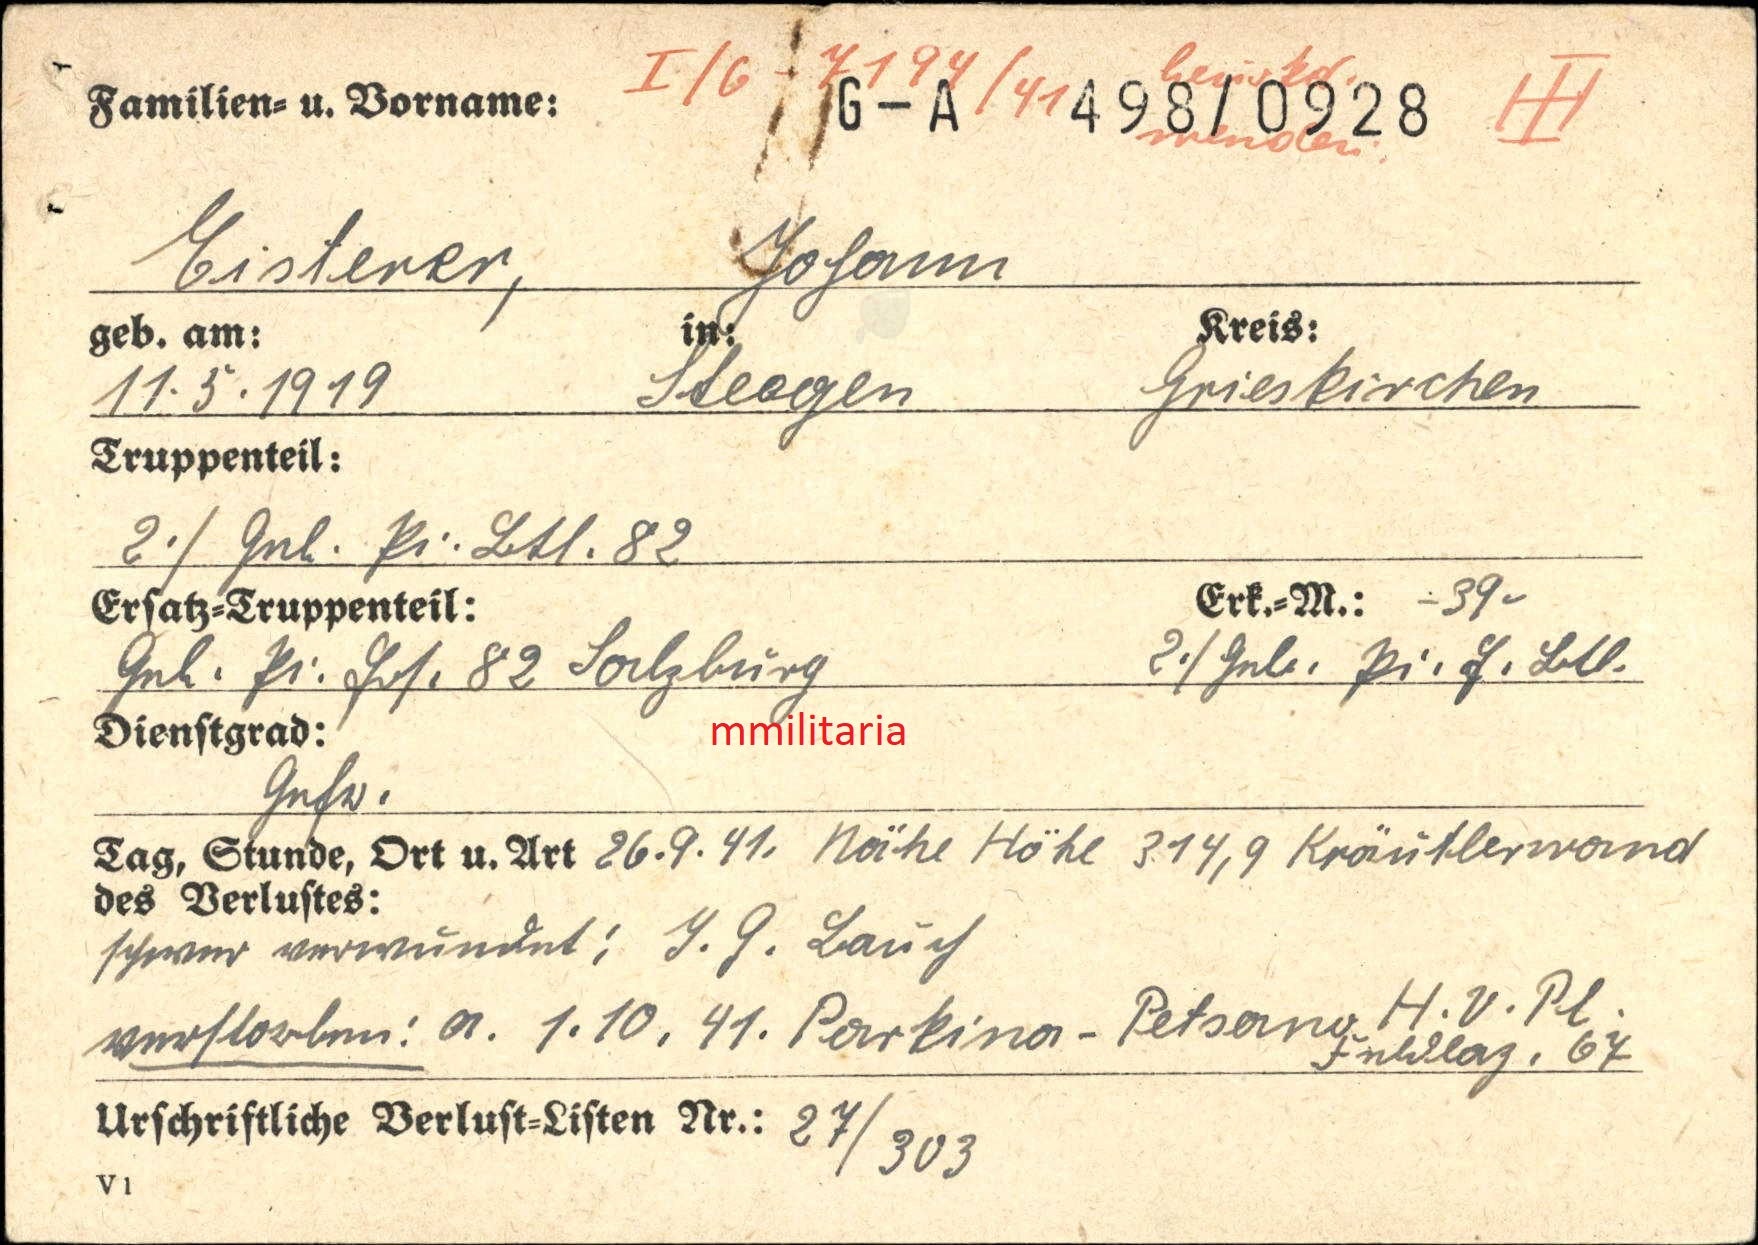 I/6 - 7194/41
G-A 498/0928
III
Familien- u. Vorname:
wenden.
Eisterer, Johann
geb. am: in: Kreis:
11.5.1919 Steegen Grieskirchen
Truppenteil:
2./ Geb. Pi. Btl. 82
Ersatz-Truppenteil: Erk.-M.: -39-
Geb. Pi. Ers. 82 Salzburg 2./Geb. Pi. E. Btl.
Dienstgrad:
mmilitaria
Gefr.
Tag, Stunde, Ort u. Art 26.9.41. Nähe Höhe 314,9 Kräutlerwand
des Verlustes:
schwer verwundet; I. G. Bauch
verstorben: a. 1.10.41. Parkina - Petsamo H.V.Pl.
Feldlaz. 67
Urschriftliche Verlust-Listen Nr.: 27/303
V 1